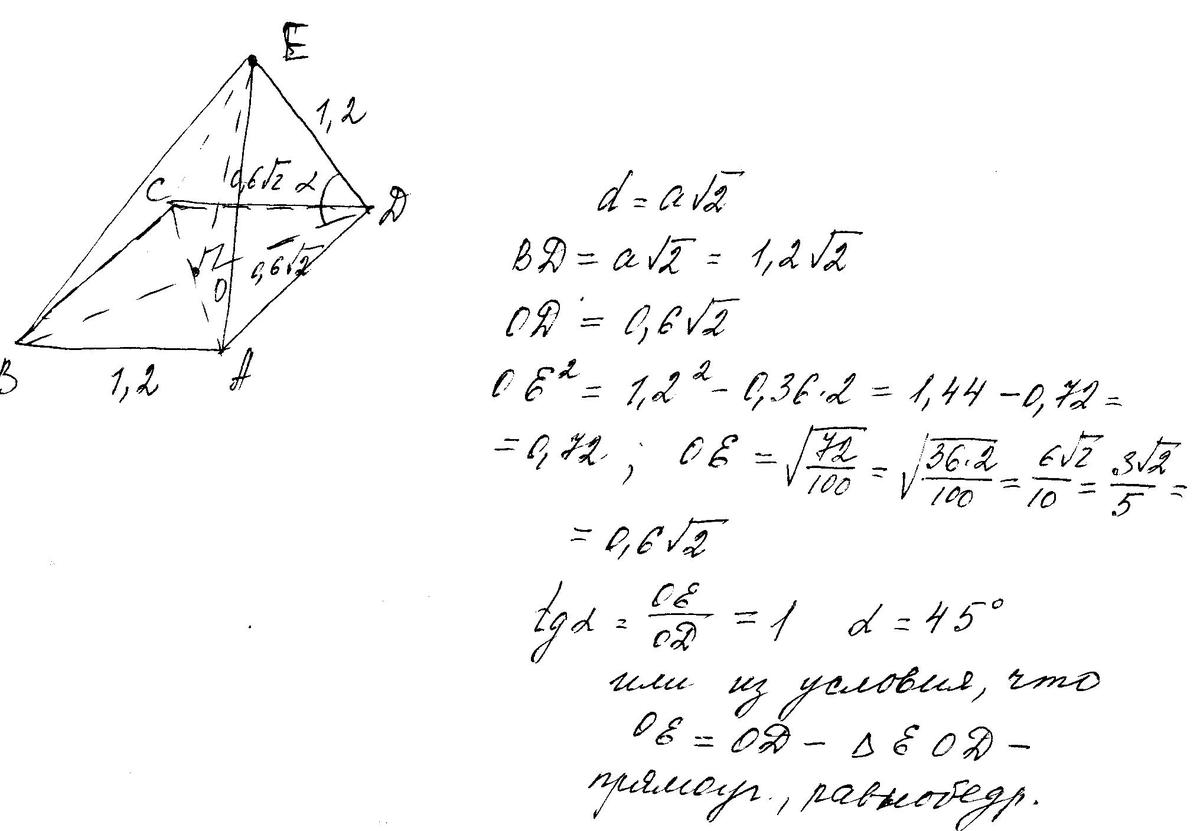 E
1,2
C
0,6√2 α
D
0,6√2
O
B
1,2
A
d = a√2
BD = a√2 = 1,2√2
OD = 0,6√2
OE² = 1,2² - 0,36·2 = 1,44 - 0,72 =
= 0,72 ; OE = √(72/100) = √(36·2/100) = 6√2/10 = 3√2/5 =
= 0,6√2
tgα = OE/OD = 1 α = 45°
или из условия, что
OE = OD - Δ EOD -
прямоуг., равнобедр.